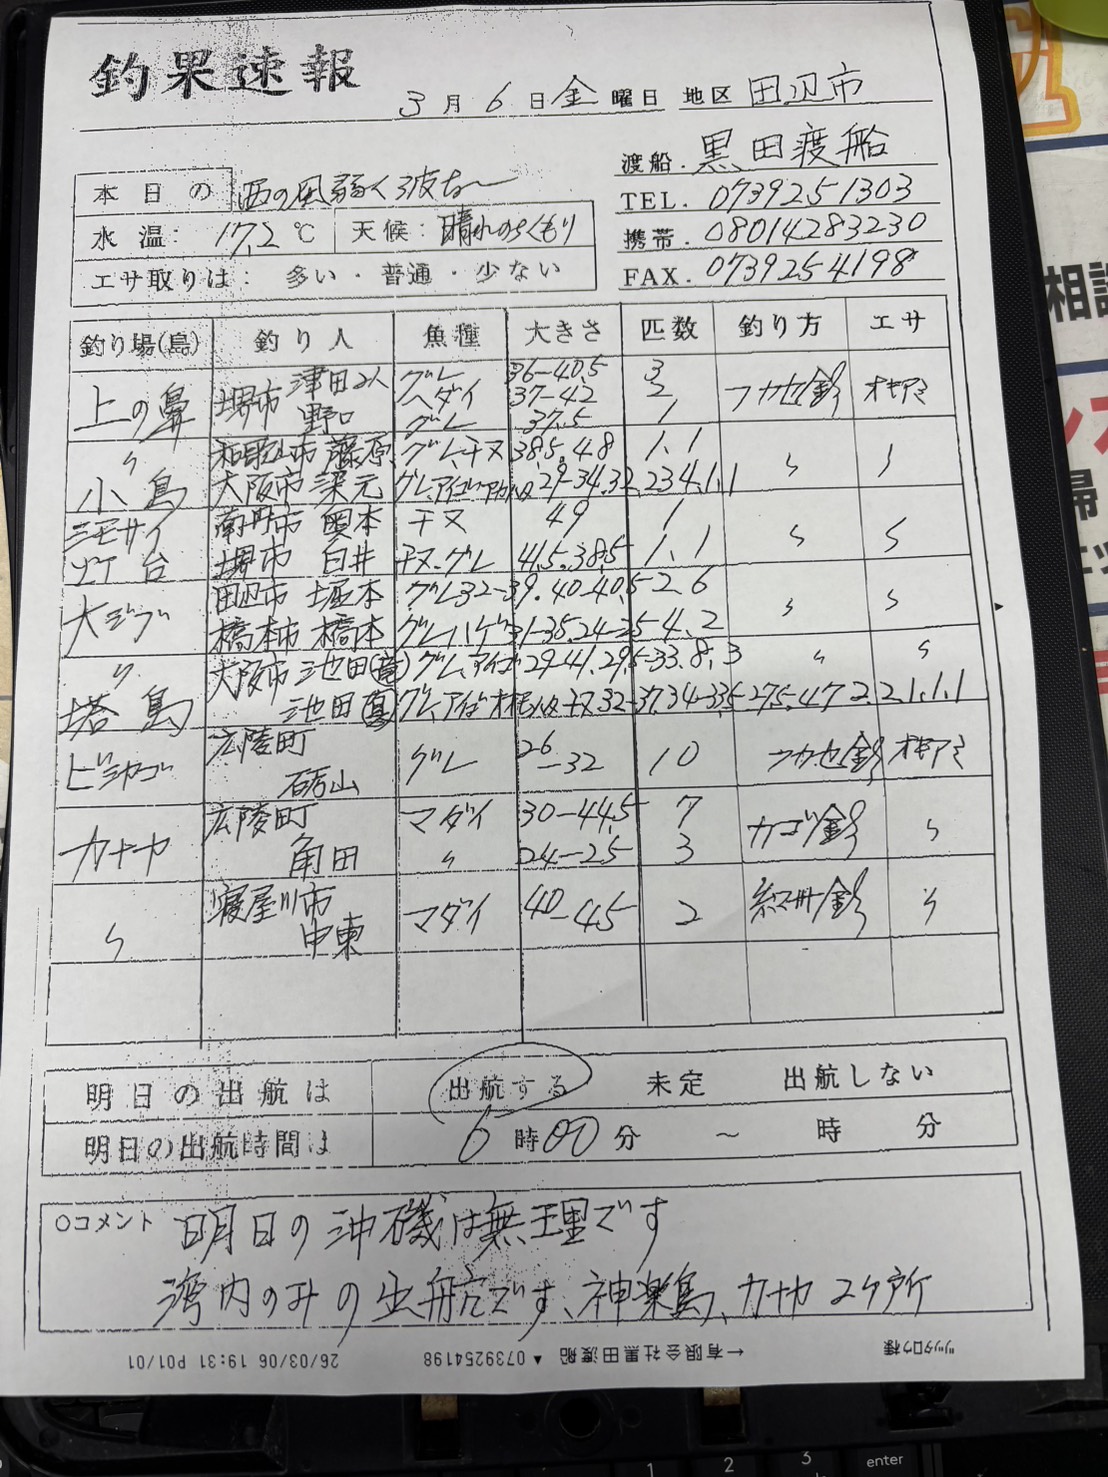 釣果速報
3月6日金曜日 地区 田辺市
渡船. 黒田渡船
本日の 西の風弱く波なし
TEL. 0739251303
水温: 17,2℃ 天候: 晴れのちくもり
携帯. 08014283230
エサ取りは: 多い・普通・少ない
FAX. 0739254198
釣り場(島) 釣り人 魚種 大きさ 匹数 釣り方 エサ
上の鼻 堺市 津田2人 グレ 36-40,5 3
ヘダイ 37-42 2 フカセ釣 オキアミ
野口 グレ 37,5 1
〃 和歌山市 藤原 グレ、チヌ 38,5、48 1、1 〃 〃
小島 大阪市 深元 グレ、アイゴ 29-34,32,
南丹市 奥本 チヌ 49 1 〃 〃
灯台 堺市 白井 チヌ、グレ 41,5、38,5 1、1
大ジブ 田辺市 堀本 グレ 32-39、40-40,5 2、6 〃 〃
橋本市 橋本 グレ ハゲ 31-35、24-25 4、2
〃 大阪市 池田(竜) グレ、アイゴ 29-41、29,5-33、8、3 〃 〃
塔島 池田 グレ、アイゴ 32-37、34-33,5 27,5、47 2、2、1、1、1
ビシャゴ 広陵町 砺山 グレ 26-32 10 フカセ釣 オキアミ
カナヤ 広陵町 角田 マダイ 30-44,5 7 カゴ釣 〃
〃 24-25 3
〃 寝屋川市 中東 マダイ 40-45 2 紀州釣 〃
明日の出航は 出航する 未定 出航しない
明日の出航時間は 6時00分 ～ 時 分
○コメント 明日の沖磯は無理です
湾内のみの出航です、神楽島、カナヤ 2ケ所
ツツタロウ様 ←有限会社黒田渡船 ▲ 0739254198 26/03/06 19:31 P01/01
相談
1 2 3 enter